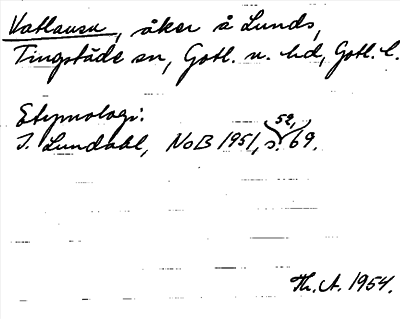 Vatlausu, åker å Lunds,
Tingstäde sn, Gotl. n. hd, Gotl. l.
Etymologi:
I. Lundahl, NoB 1951, s. 52, 69.
Th. A. 1954.